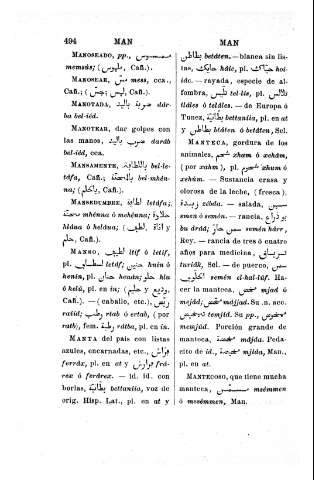 494 MAN MAN
MANOSEADO, pp., ممسوس
memsús; (ملموس, Cañ.).
MANOSEAR, مسّ mess, cca.,
Cañ.; (لمس; جسّ, Cañ.).
MANOTADA, ضربة باليد dár-
ba bel-iéd.
MANOTEAR, dar golpes con
las manos, ضرب باليد daráb
bel-iéd, cca.
MANSAMENTE, باللطافة bel-le-
táfa, Cañ.; بالمحنّة bel-mhén-
na; (بالحلم, Cañ.).
MANSEDUMBRE, لطافة letáfa;
محنّة mhénna ó mehénna; حلاوة
hláua ó heláua; (اناة, لطف y
حلم, Cañ.).
MANSO, لطيف letíf ó ltíf,
pl. لطاف letáf; حنين hnín ó
henín, pl. حنان henán; حلو hlú
ó helú, pl. en in; (حليم y وديع,
Cañ.). — (caballo, etc.), ريّض
raiíd; رطب rtab ó ertab, (por
rath), fem. رطبة rátba, pl. en in.
MANTA del país con listas
azules, encarnadas, etc., فراش
ferráx, pl. en at y فرارش frá-
rex ó ferárex. — id. id. con
borlas, بطّانية bettanía, voz de
orig. Hisp. Lat., pl. en at y
بطاطن betáten. — blanca sin lis-
tas, حايك háic, pl. حياك hoi-
idc. — rayada, especie de al-
fombra, تليس tel-lis, pl. تلالس
tláles ó teláles. — de Europa ó
Tunez, بطّانية bettanía, pl. en at
y بطاطن btáten ó betáten, Sel.
MANTECA, gordura de los
animales, شحم xham ó xehám,
(por xahm), pl. شحوم xhóm ó
xehóm. — Sustancia crasa y
olorosa de la leche, (fresca).
زبدة zibda. — salada, سمن
semen ó semén. — rancia, بوذراع
bu drád; سمن حارّ semén hárr,
Rey. — rancia de tres ó cuatro
años para medicina, ترياق
turiák, Sel. — de puerco, سمن
الخلوف semén el-hal-lúf. Ha-
cer la manteca, مخض mjad ó
mejád; مخّض májjad. Su n. acc.
تمخيض temjid. Su pp., ممخوض
memjúd. Porción grande de
manteca, مخضة májda. Peda-
cito de id., مخيضة mjida, Man.,
pl. en at.
MANTECOSO, que tiene mucha
manteca, مسمّن msémmen
ó mesémmen, Man.